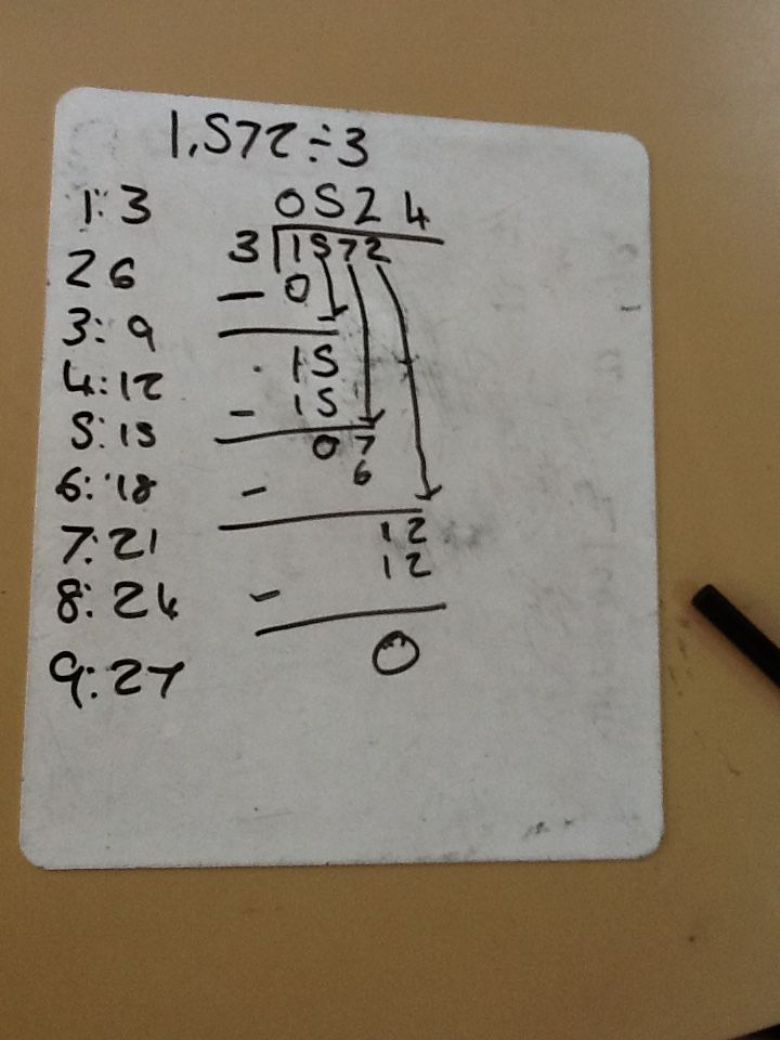 1,572÷3
1:3
2 6
3:9
4:12
5:15
6:18
7:21
8:24
9:27
0524
3 1572
- 0
15
- 15
07
- 6
12
- 12
0